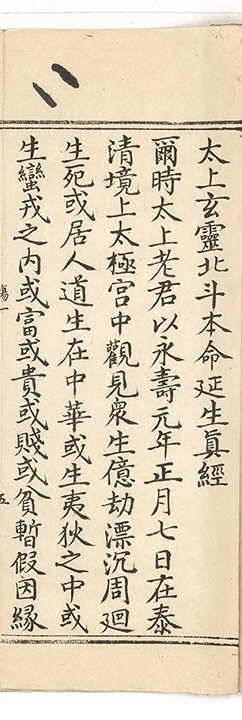 太上玄靈北斗本命延生眞經
爾時太上老君以永壽元年正月七日在泰
清境上太極宮中觀見衆生億劫漂沉周迴
生死或居人道生在中華或生夷狄之中或
生蠻戎之内或富或貴或賤或貧暫假因緣
傷一
五